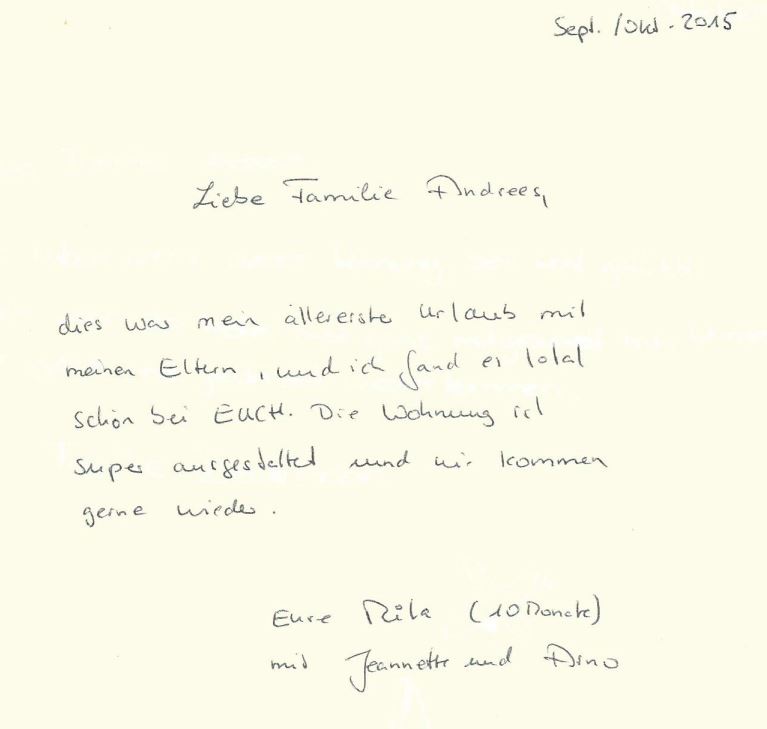 Sept. / Okt. 2015
Liebe Familie Andrees,
dies war mein allererster Urlaub mit
meinen Eltern, und ich fand es total
schön bei EUCH. Die Wohnung ist
super ausgestattet und wir kommen
gerne wieder.
Eure (10 Monate)
mit Jeannette und Arno